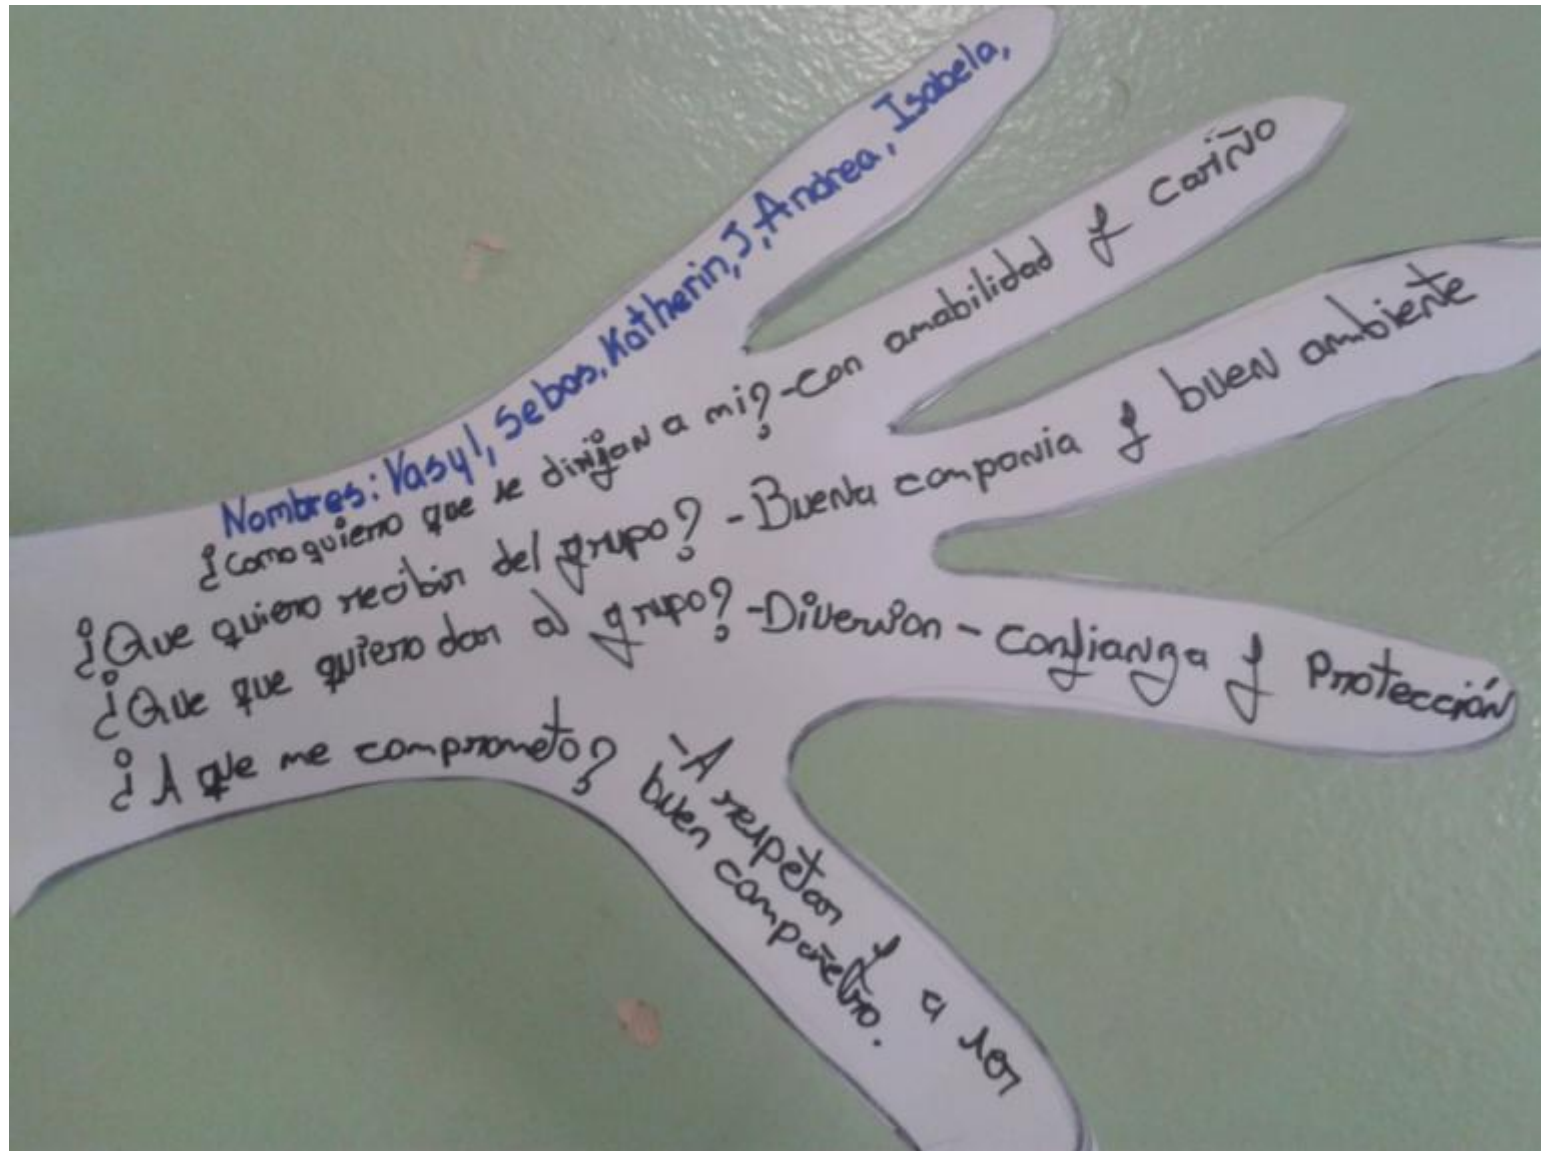 Nombres: Vasyl, Sebas, Katherin, J, Andrea, Isabela,
¿Como quiero que se dirijan a mi? - Con amabilidad y cariño
¿Que quiero recibir del grupo? - Buena compania y buen ambiente
¿Que que quiero dar al grupo? - Diversion - confianza y Protección
¿A que me comprometo? - A respetar y a ser
buen compañero.